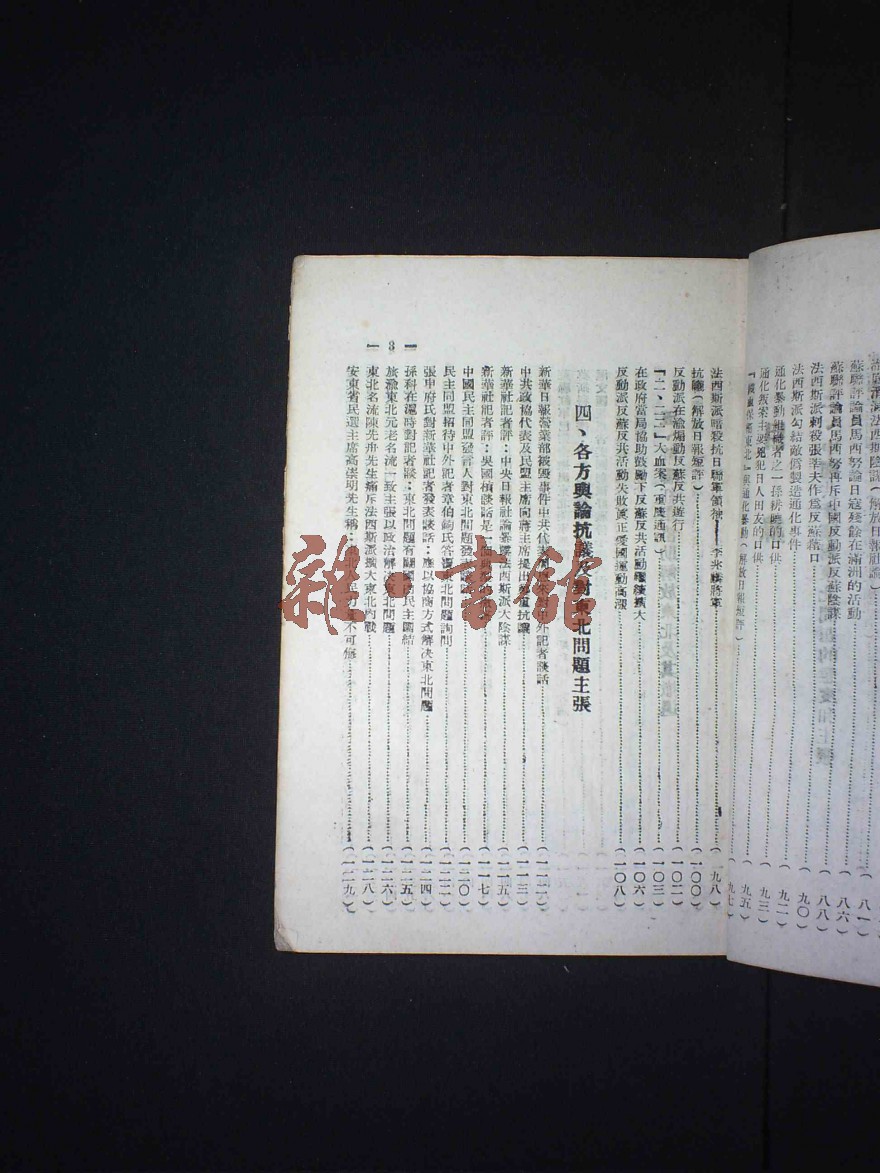 蘇聯評論員馬西努論日寇殘餘在滿洲的活動……(八六)
蘇聯評論員馬西努再斥中國反動派反蘇陰謀……(八八)
法西斯派刺殺張莘夫作爲反蘇藉口……(九〇)
法西斯派勾結敵僞製造通化事件……(九二)
通化暴動組織者之一孫耕曉的口供……(九三)
通化叛案主要兇犯日人田友的口供……(九五)
保衛東北』與通化暴動(解放日報短評)……(九七)
法西斯派暗殺抗日聯軍領袖——李兆麟將軍……(九八)
抗議(解放日報短評)……(一〇〇)
反動派在渝煽動反蘇反共遊行……(一〇二)
『二、二二』大血案(重慶通訊)……(一〇三)
在政府當局協助鼓勵下反蘇反共活動繼續擴大……(一〇六)
反動派反蘇反共活動失敗眞正愛國運動高漲……(一〇八)
四、各方輿論抗議及對東北問題主張
新華日報營業部被毀事件中共代表周恩來對中外記者談話……(一一二)
中共政協代表及民盟主席向蔣主席提出嚴重抗議……(一一三)
新華社記者評:中央日報社論暴露法西斯派大陰謀……(一一五)
新華社記者評:吳國楨談話是……(一一七)
中國民主同盟發言人對東北問題發表談話……(一二〇)
民主同盟招待中外記者章伯鈞氏答覆東北問題詢問……(一二二)
張申府氏對新華社記者發表談話:應以協商方式解決東北問題……(一二四)
孫科在滬時對記者談:東北問題有關國內民主團結……(一二五)
旅渝東北元老名流一致主張以政治解決東北問題……(一二六)
東北名流陳先舟先生痛斥法西斯派擴大東北內戰……(一二八)
安東省民選主席高崇明先生稱:東北民切實不可侮……(一二九)
— 3 —
雜·書館